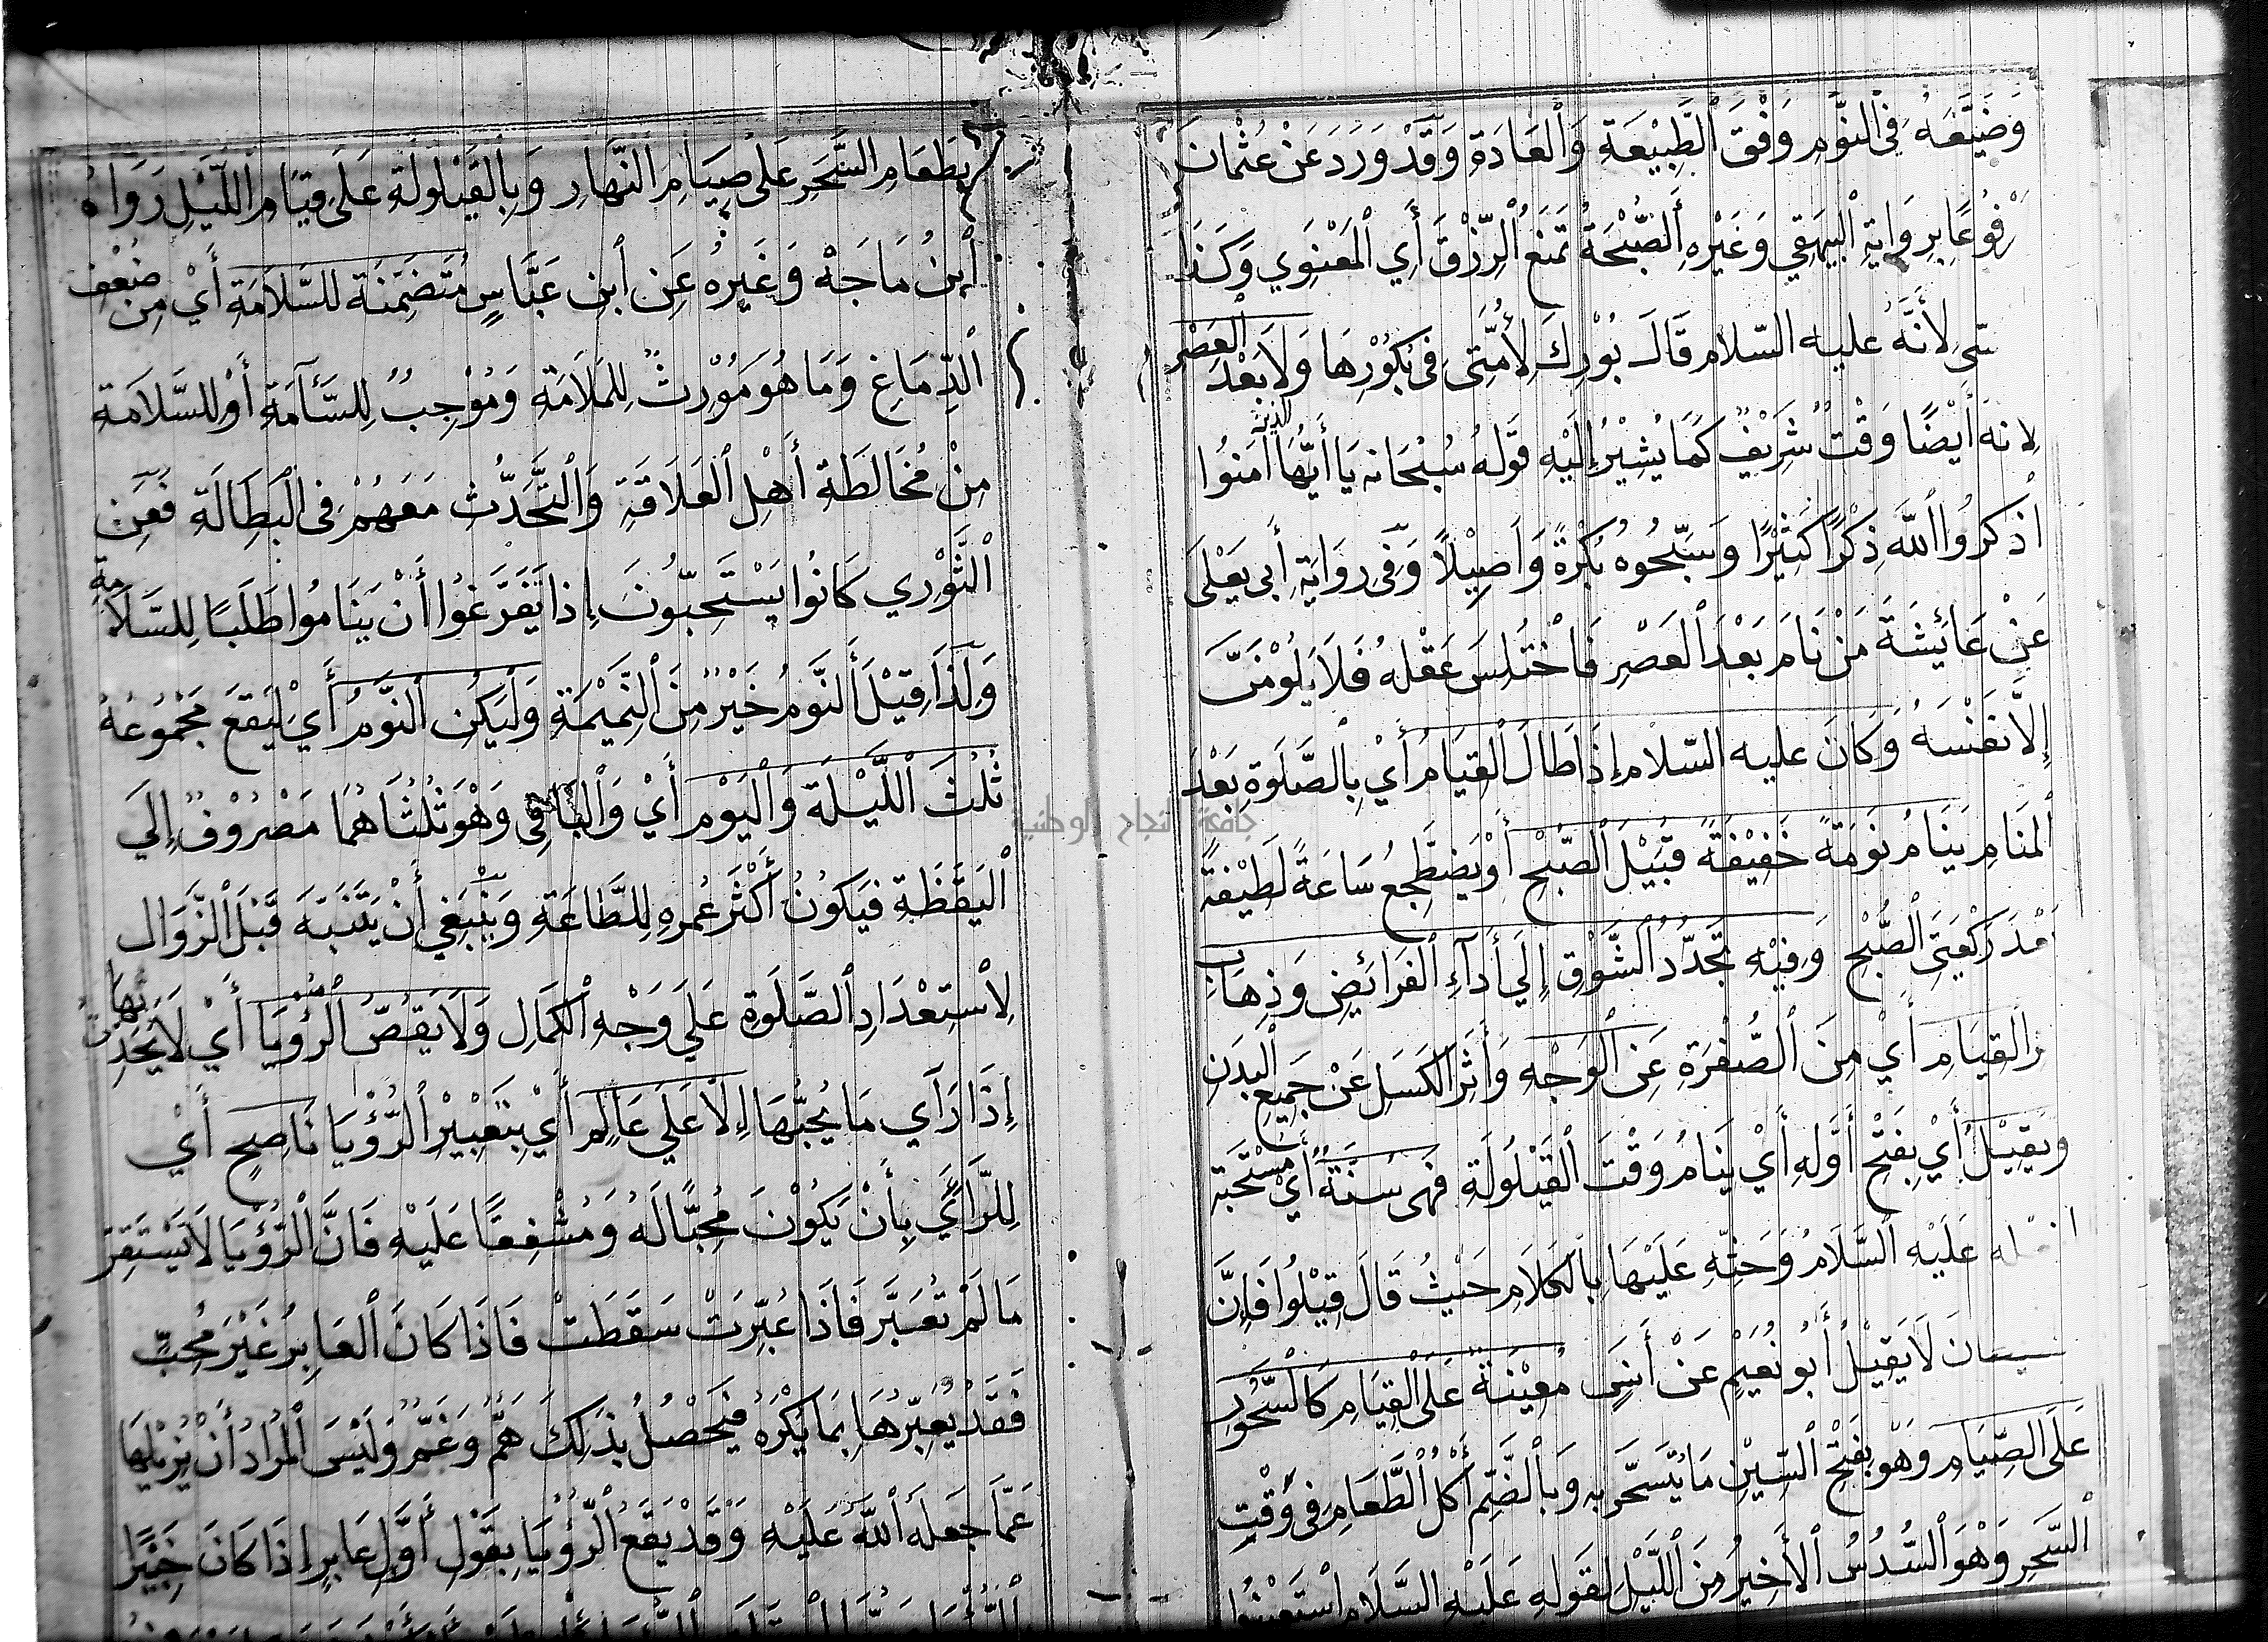 وَضَيَّعَهُ فِي النَّوْمِ وَفْقَ الطَّبِيْعَةِ وَالْعَادَةِ وَقَدْ وَرَدَ عَنْ عُثْمَانَ
رْفُوْعًا بِرِوَايَةِ الْبَيْهَقِي وَغَيْرِهِ الصُّبْحَةُ تَمْنَعُ الرِّزْقَ أَيِ الْمَعْنَوِي وَكَذَا
لِأَنَّهُ عليه السّلام قَالَ بُوْرِكَ لِأُمَّتِي فِي بُكُوْرِهَا وَلَا بَعْدَ الْعَصْرِ
لانه أَيْضًا وَقْتٌ شَرِيْفٌ كَمَا يُشِيْرُ إِلَيْهِ قَوْلُهُ سُبْحَانه يَا أَيُّهَا الذين آمَنُوا
اذْكُرُوا اللَّهَ ذِكْرًا كَثِيْرًا وَسَبِّحُوهُ بُكْرَةً وَأَصِيْلًا وَفِي رِوَايَةِ أَبِي يَعْلَى
عَنْ عَائِشَةَ مَنْ نَامَ بَعْدَ الْعَصْرِ فَاخْتُلِسَ عَقْلُهُ فَلَا يَلُوْمَنَّ
إِلَّا نَفْسَهُ وَكَانَ عليه السّلام إِذَا طَالَ الْقِيَامُ أَيْ بِالصَّلَوةِ بَعْدَ
الْمَنَامِ يَنَامُ نَوْمَةً خَفِيْفَةً قُبَيْلَ الصُّبْحِ أَوْ يَضْطَجِعُ سَاعَةً لَطِيْفَةً
رَكْعَتَيِ الصُّبْحِ وَفِيْهِ تَجَدُّدُ الشَّوْقِ إِلَى أَدَآءِ الْفَرَائِضِ وَذِهَابِ
الْقِيَامِ أَيْ مِنَ الصُّفْرَةِ عَنِ الْوَجْهِ وَأَثَرِ الْكَسَلِ عَنْ جَمِيْعِ الْبَدَنِ
وَيَقِيْلُ أَيْ بِفَتْحِ أَوَّلِهِ أَيْ يَنَامُ وَقْتَ الْقَيْلُولَةِ فَهِي سُنَّةٌ أَيْ مُسْتَحَبَّة
عَلَيْهِ السَّلَامُ وَحَثِّهِ عَلَيْهَا بِالْكَلَامِ حَيْثُ قَالَ قِيْلُوا فَإِنَّ
لَا يَقِيْلُ أَبُو نُعَيْمٍ عَنْ أَنَسٍ مُعِيْنَةٌ عَلَى الْقِيَامِ كَالسَّحُوْرِ
عَلَى الصِّيَامِ وَهْوَ بِفَتْحِ السِّيْنِ مَا يُتَسَحَّرُ بِهِ وَبِالضَّمِّ أَكْلُ الطَّعَامِ فِي وَقْتِ
السَّحَرِ وَهْوَ السُّدُسُ الْأَخِيْرُ مِنَ اللَّيْلِ لِقَوْلِهِ عَلَيْهِ السَّلَام اسْتَعِيْنُوا
بِطَعَامِ السَّحَرِ عَلَى صِيَامِ النَّهَارِ وَبِالْقَيْلُولَةِ عَلَى قِيَامِ اللَّيْلِ رَوَاهُ
ابْنُ مَاجَهْ وَغَيْرُهُ عَنِ ابْنِ عَبَّاسٍ مُتَضَمِّنَةٌ لِلسَّلَامَةِ أَيْ مِنْ ضَعْفِ
الدِّمَاغِ وَمَا هُوَ مُوْرِثٌ لِلْمَلَامَةِ وَمُوْجِبٌ لِلسَّآمَةِ أَوْ لِلسَّلَامَةِ
مِنْ مُخَالَطَةِ أَهْلِ الْعَلَاقَةِ وَالتَّحَدُّثِ مَعَهُمْ فِي الْبَطَالَةِ فَعَنِ
الثَّوْرِي كَانُوا يَسْتَحِبُّونَ إِذَا تَفَرَّغُوا أَنْ يَنَامُوا طَلَبًا لِلسَّلَامَةِ
وَلِذَا قِيْلَ النَّوْمُ خَيْرٌ مِنَ النَّمِيْمَةِ وَلْيَكُنِ النَّوْمُ أَيْ لِيَقَعَ مَجْمُوعُهُ
ثُلُثَ اللَّيْلَةِ وَالْيَوْمِ أَيْ وَالْبَاقِي وَهْوَ ثُلُثَاهُمَا مَصْرُوْفٌ إِلَى
الْيَقَظَةِ فَيَكُوْنُ أَكْثَرُ عُمْرِهِ لِلطَّاعَةِ وَيَنْبَغِي أَنْ يَتَنَبَّهَ قَبْلَ الزَّوَالِ
لِاسْتِعْدَادِ الصَّلَوةِ عَلَى وَجْهِ الْكَمَالِ وَلَا يَقُصُّ الرُّؤْيَا أَيْ لَا يُحَدِّثُ بِهَا
إِذَا رَآى مَا يُحِبُّهَا إِلَّا عَلَى عَالِمٍ أَيْ بِتَعْبِيْرِ الرُّؤْيَا نَاصِحٍ أَيْ
لِلرَّائِي بِأَنْ يَكُوْنَ مُحِبًّا لَهُ وَمُشْفِقًا عَلَيْهِ فَانَّ الرُّؤْيَا لَا يَسْتَقِرُّ
مَا لَمْ تُعَبَّرْ فَاذَا عُبِّرَتْ سَقَطَتْ فَاذَا كَانَ الْعَابِرُ غَيْرَ مُحِبٍّ
فَقَدْ يُعَبِّرُهَا بِمَا يَكْرَهُ فَيَحْصُلُ بِذَلِكَ هَمٌّ وَغَمٌّ وَلَيْسَ الْمُرَادُ أَنْ يُزِيْلَهَا
عَمَّا جَعَلَهُ اللَّهُ عَلَيْهِ وَقَدْ يَقَعُ الرُّؤْيَا بِقَوْلِ أَوَّلِ عَابِرٍ إِذَا كَانَ خَبِيْرًا